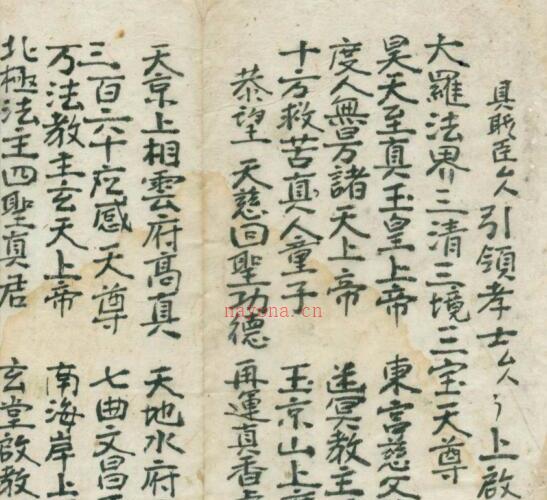 具職臣厶人引領孝士厶人上啟
大羅法界三清三境三宝天尊
昊天至真玉皇上帝 東宫慈父
度人無量諸天上帝 冥教主
十方救苦真人童子 玉京山上
恭望 天慈回聖功德 再運真香
天京上相雲府高真 天地水府
三百六十应感天尊 七曲文昌
万法教主玄天上帝 南海岸上
北極法主四聖真君 玄堂啟教
nayona.cn